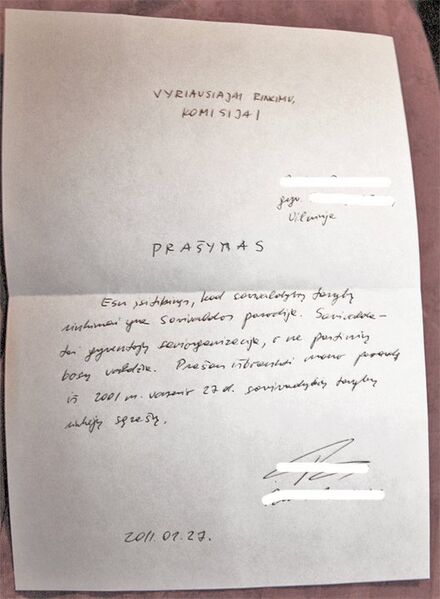 VYRIAUSIAJAI RINKIMŲ
KOMISIJAI
gyv.
Vilniuje
PRAŠYMAS
Esu įsitikinęs, kad savivaldybių tarybų
rinkimai yra Savivaldos parodija. Savivalda -
tai gyventojų saviorganizacija, o ne partinių
bosų valdžia. Prašau išbraukti mano pavardę
iš 2011 m. vasario 27 d. savivaldybių tarybų
rinkėjų sąrašų.
2011.01.27.